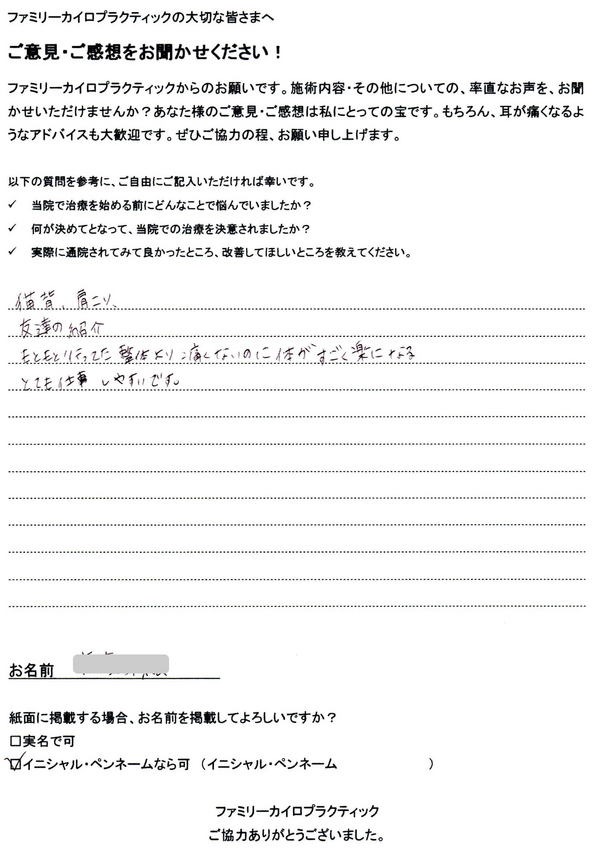 ファミリーカイロプラクティックの大切な皆さまへ
ご意見・ご感想をお聞かせください！
ファミリーカイロプラクティックからのお願いです。施術内容・その他についての、率直なお声を、お聞
かせいただけませんか？あなた様のご意見・ご感想は私にとっての宝です。もちろん、耳が痛くなるよ
うなアドバイスも大歓迎です。ぜひご協力の程、お願い申し上げます。
以下の質問を参考に、ご自由にご記入いただければ幸いです。
✓ 当院で治療を始める前にどんなことで悩んでいましたか？
✓ 何が決めてとなって、当院での治療を決意されましたか？
✓ 実際に通院されてみて良かったところ、改善してほしいところを教えてください。
猫背、肩こり、
友達の紹介
もともと行ってた整体より痛くないのに体がすごく楽になる
とても仕事しやすいです。
お名前
紙面に掲載する場合、お名前を掲載してよろしいですか？
□実名で可
☑イニシャル・ペンネームなら可 （イニシャル・ペンネーム ）
ファミリーカイロプラクティック
ご協力ありがとうございました。